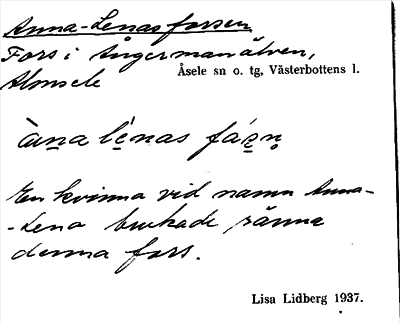 Anna-Lenasforsen
Fors i Ångermanälven,
Åsele sn o. tg, Västerbottens l.
Almsele
àna lènas fáṣṇ
En kvinna vid namn Anna-
-Lena brukade ränna
denna fors.
Lisa Lidberg 1937.